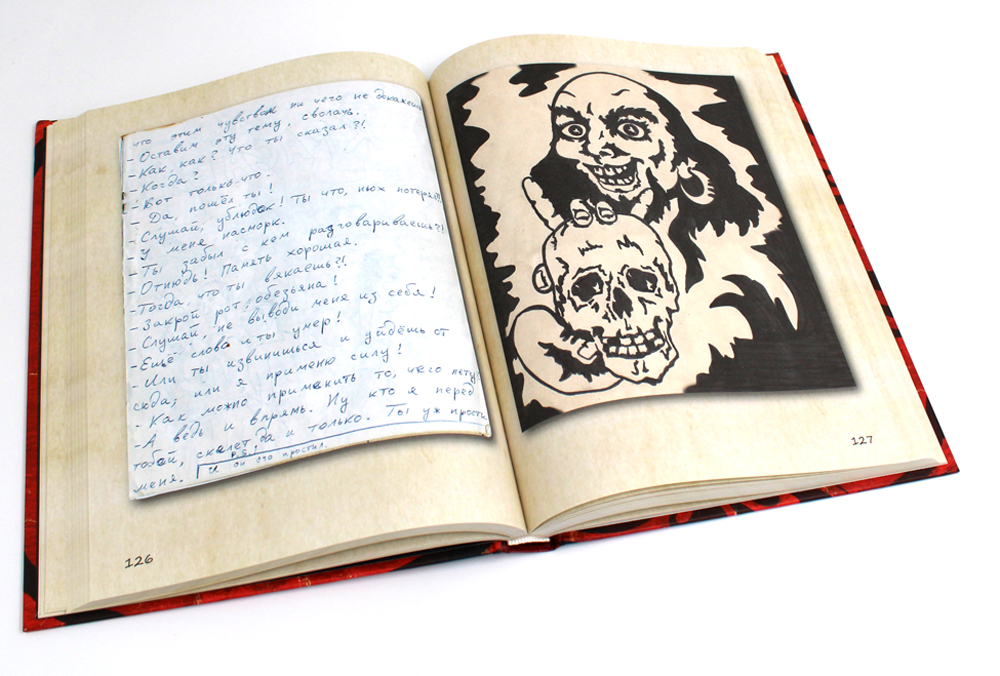 что этим чувством ни чего не докажешь
- Оставим эту тему, сволочь.
- Как, как? Что ты сказал?!
- Когда?
- Вот только-что.
- Да, пошёл ты!
- Слушай, ублюдок! Ты что, нюх потерял?!
- У меня насморк.
- Ты забыл с кем разговариваешь?!
- Отнюдь! Память хорошая.
Тогда, что ты вякаешь?!
- Закрой рот, обезьяна!
- Слушай, не выводи меня из себя!
- Ещё слово и ты умер!
- Или ты извинишься и уйдёшь от
сюда, или я применю силу!
- Как можно применить то, чего нету?
- А ведь и впрямь. Ну кто я перед
тобой, скелет да и только. Ты уж прости
меня.
P.S.
И он его простил.
126
127